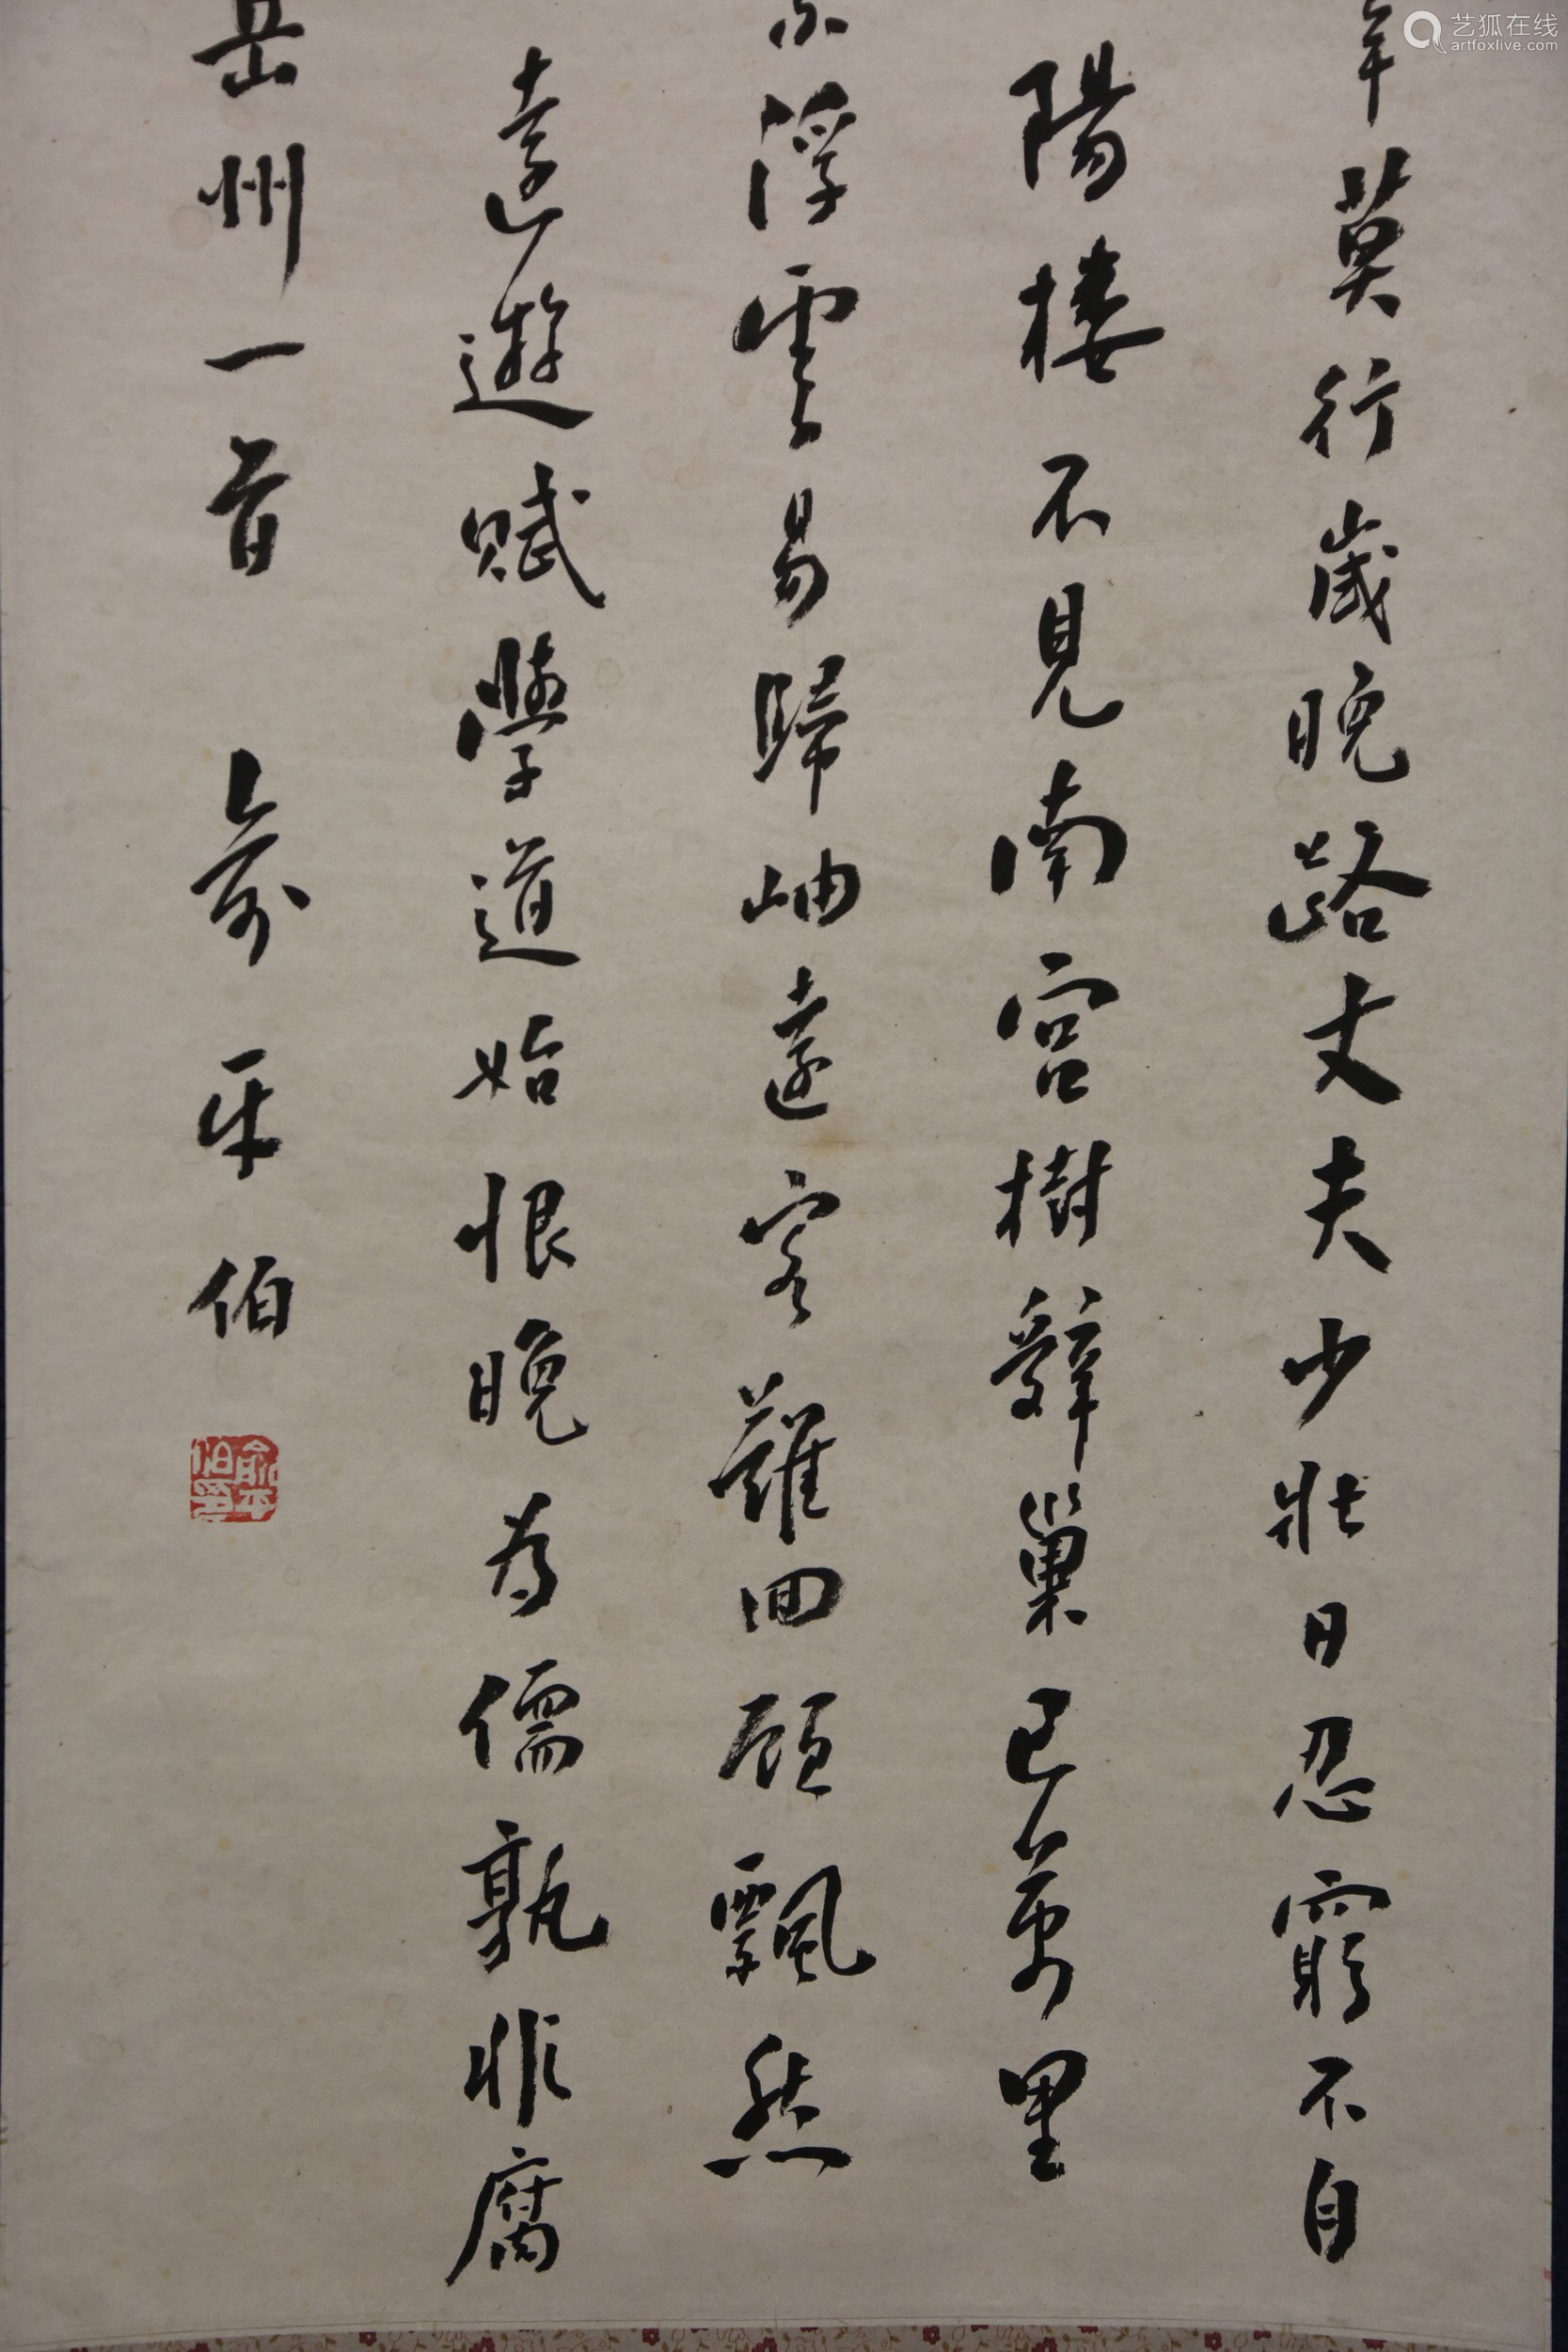 艺狐在线
artfoxlive.com
年莫行歲晚路丈夫少壯日忍窮不自
陽樓不見南宮樹辭巢已萬里
浮雲易歸岫遠客難回顧飄然
遠遊賦學道始恨晚為儒孰非腐
岳州一首 俞平伯
俞平伯印